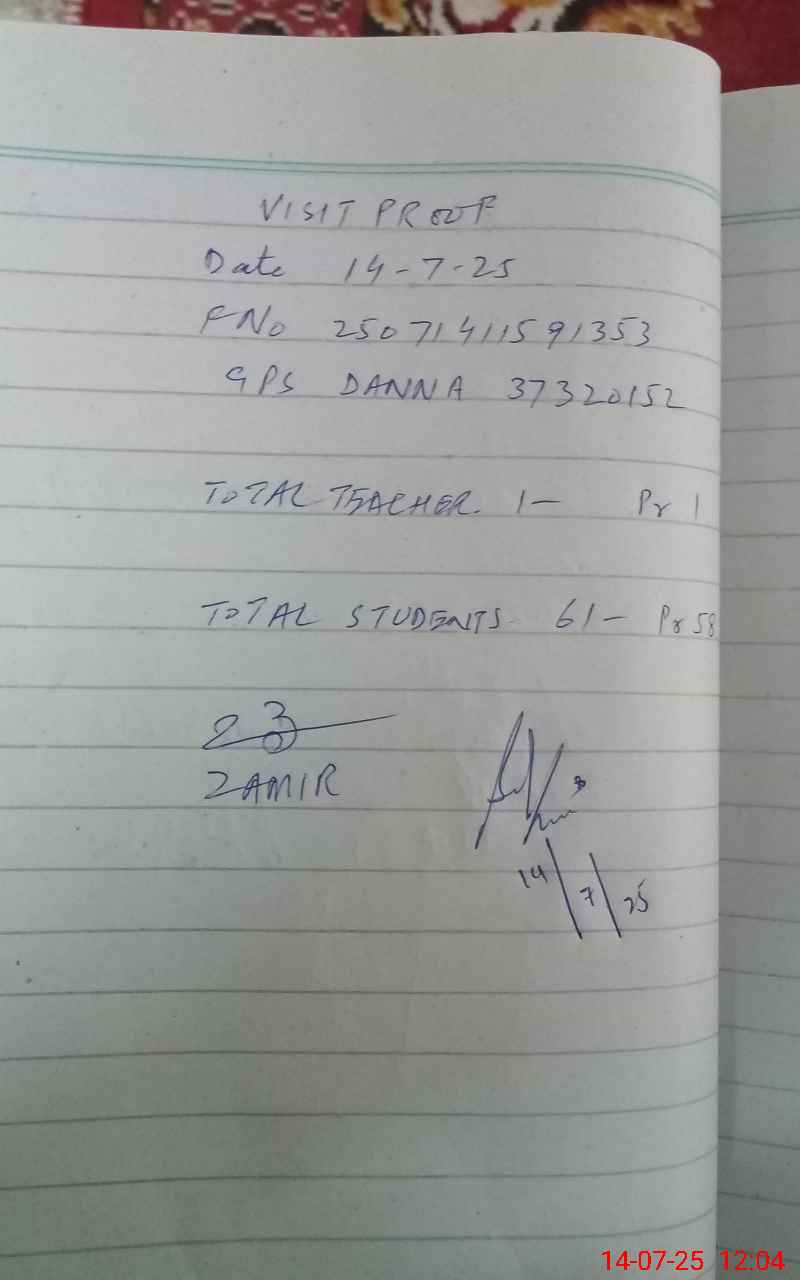 VISIT PROOF
Date 14-7-25
FNo 25071411591353
GPS DANNA 37320152
TOTAL TEACHER. 1- Pr 1
TOTAL STUDENTS. 61- Pr 58
ZAMIR
14/7/25
14-07-25 12:04